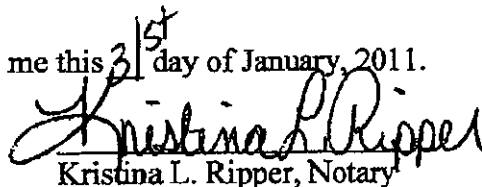 me this 31st day of January, 2011.
Kristina L. Ripper
Kristina L. Ripper, Notary